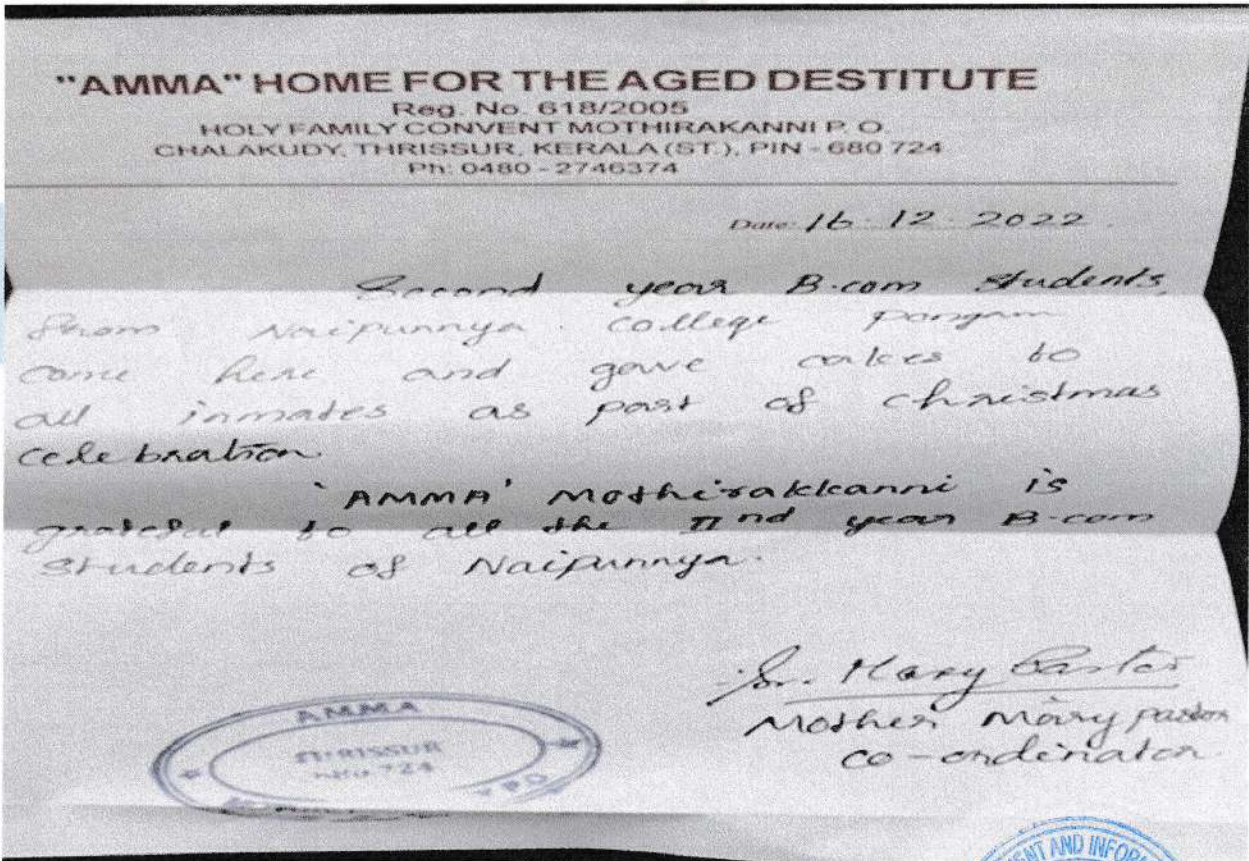 "AMMA" HOME FOR THE AGED DESTITUTE
Reg. No. 618/2005
HOLY FAMILY CONVENT MOTHIRAKANNI P. O.
CHALAKUDY, THRISSUR, KERALA (ST.), PIN - 680 724
Ph: 0480 - 2746374
Date: 16-12-2022.
Second year B.com students
from Naipunnya College Pongam
come here and gave cakes to
all inmates as part of christmas
celebration.
'AMMA' Mothirakkanni is
grateful to all the IInd year B-com
students of Naipunnya.
Sr. Mary Pastor
Mother Mary pastor
co-ordinator
AMMA
THRISSUR
680 724
ENT AND INFOR